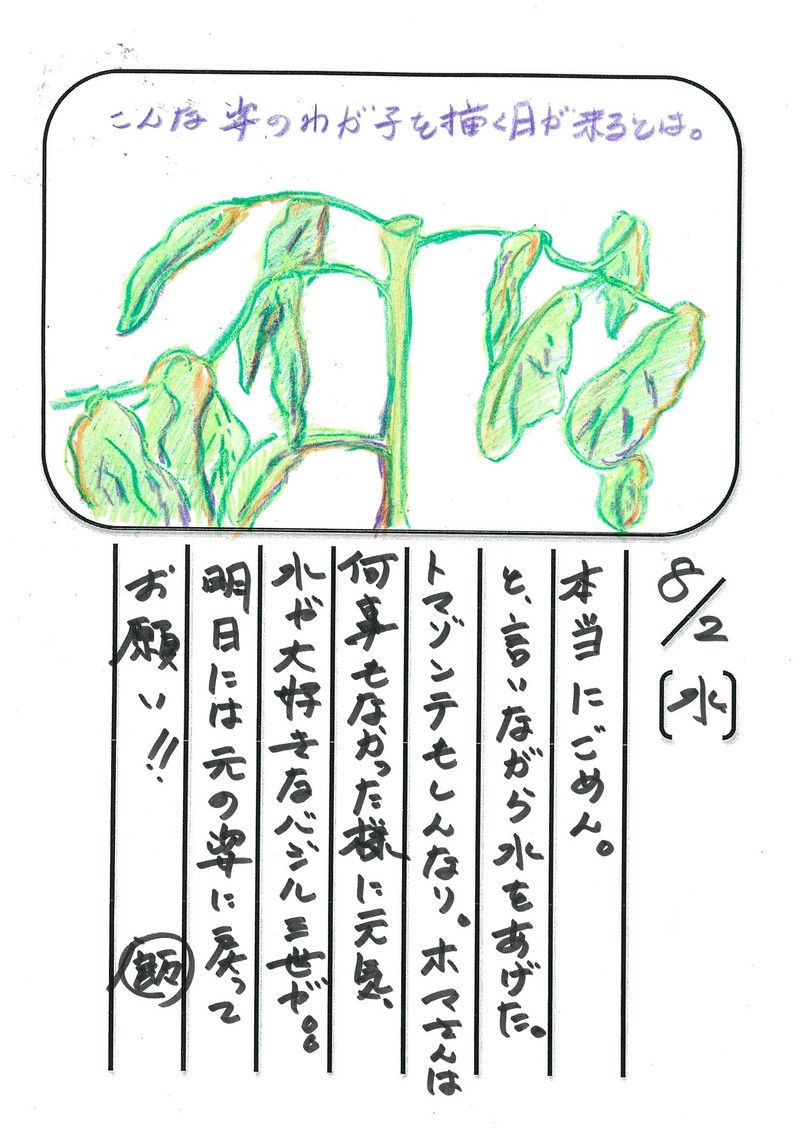 こんな姿のわが子を描く日が来るとは。
8/2〔水〕
本当にごめん。
と、言いながら水をあげた。
トマゾンテもしんなり。ホマさんは
何事もなかった様に元気、
水が大好きなバジル三世が。。
明日には元の姿に戻って
お願い!!